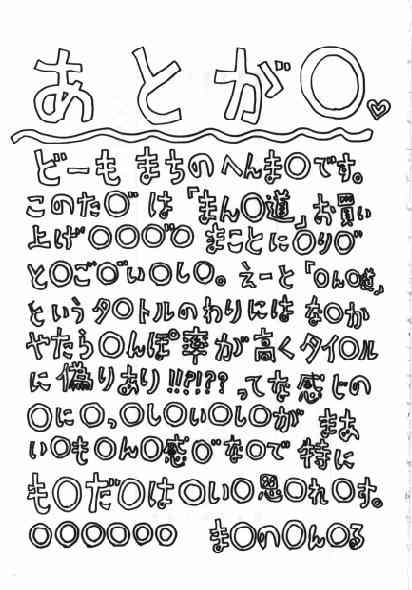 あとが○♡
どーも まちの へんま○です。
このた○゛は「まん○道」お買い
上げ○○○゛○ まことに○り○゛
と○ご○゛い○し○。えーと「○ん○道」
というタ○トルのわりには な○か
やたら○んぽ率が高くタイ○ル
に偽りあり!!?!?? ってな感じの
○に○っ○し○い○し○が まあ
い○も○ん○感○゛な○で 特に
も○だ○は○い○思○れ○す。
○○○○○○ ま○の○ん○る